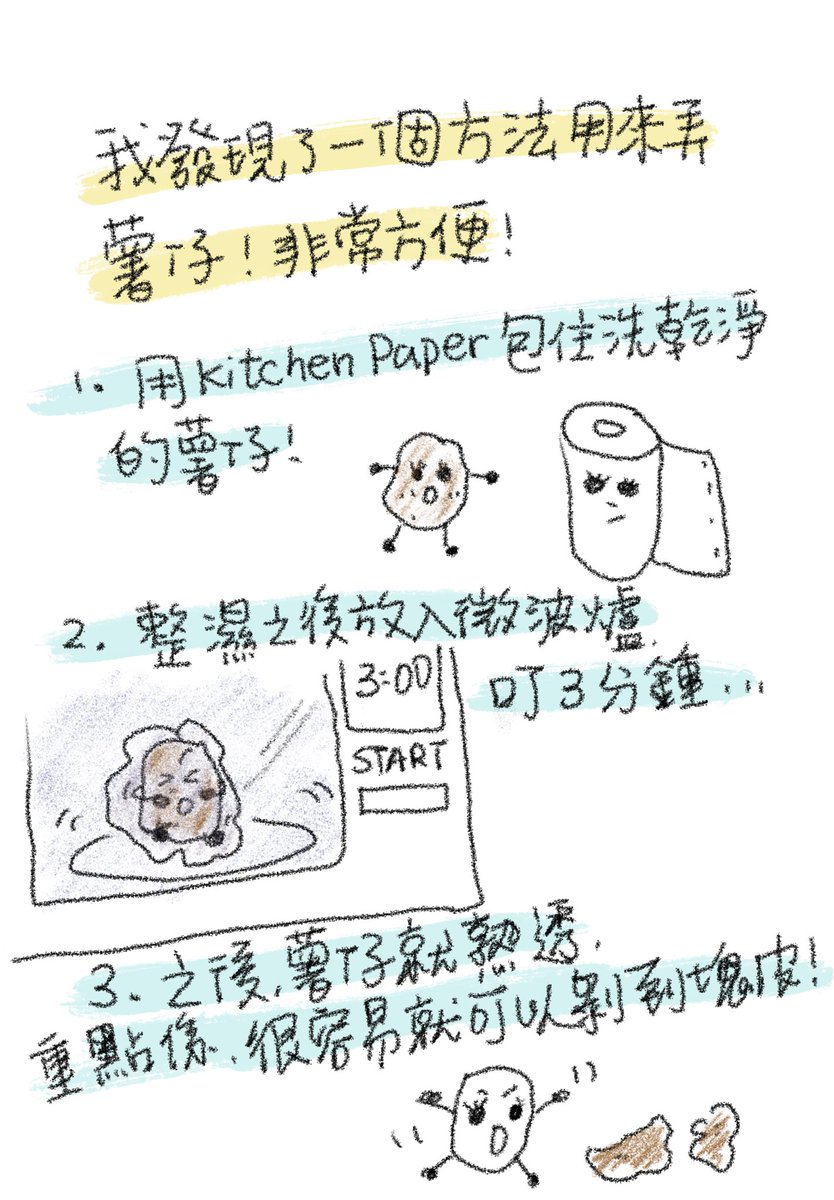 我發現了一個方法用來弄
薯仔！非常方便！
1. 用Kitchen Paper包住洗乾淨
的薯仔！
2. 整濕之後放入微波爐.
叮3分鐘...
3:00
START
3. 之後,薯仔就熟透.
重點係.很容易就可以剝到塊皮！